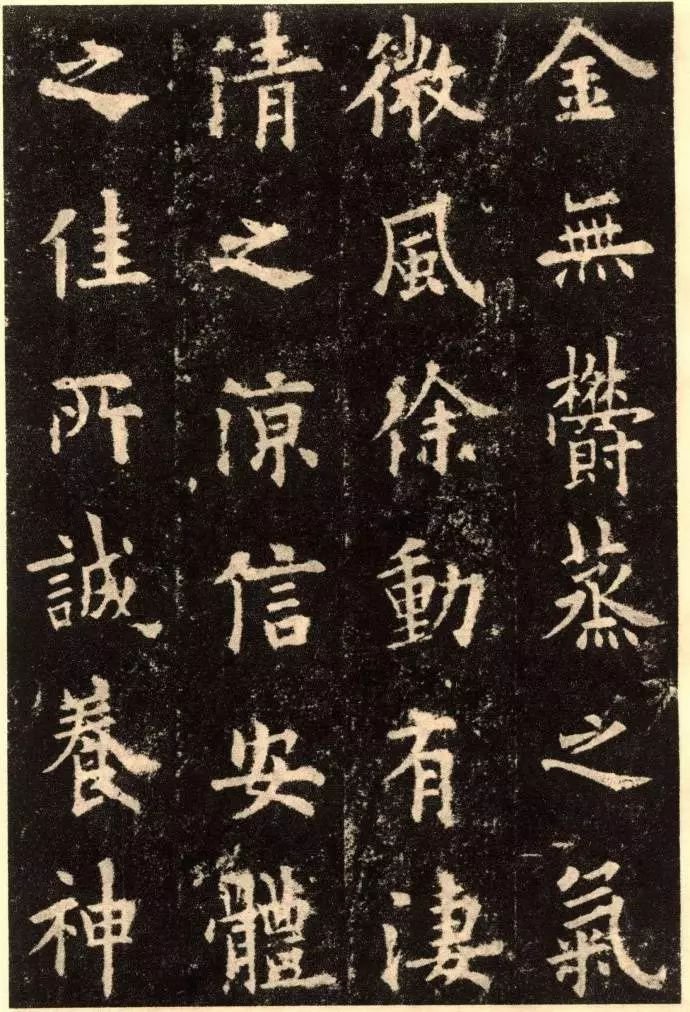 金無欎蒸之氣
微風徐動有淒
清之涼信安體
之佳所誠養神